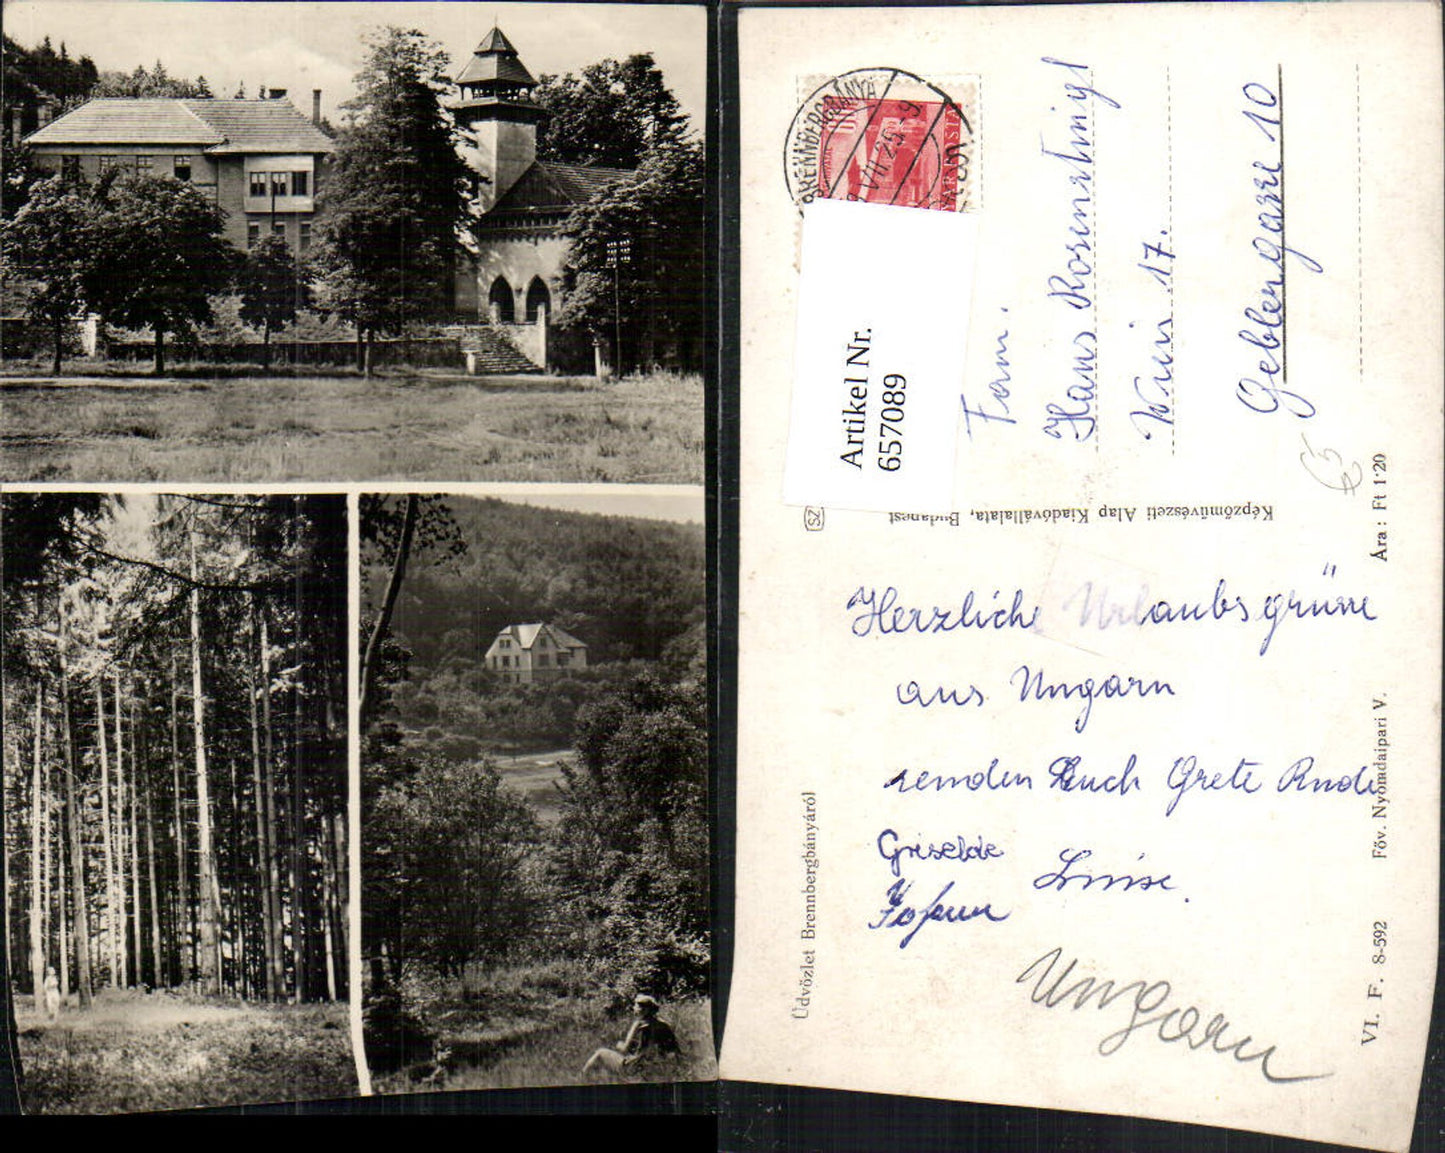 BRENNBERGBÁNYA
VII. 25.-9.
Artikel Nr.
657089
Fam.
Hans Rosenstingl
Wien 17.
Geblergasse 10
65
SZ
Képzőművészeti Alap Kiadóvállalata, Budapest
Herzliche Urlaubsgrüsse
aus Ungarn
senden Euch Grete Rudi
Griselde
Luise
Johann
Ungarn
Üdvözlet Brennbergbányáról
VI. F. 8-592 Föv. Nyomdaipari V. Ára: Ft 1·20